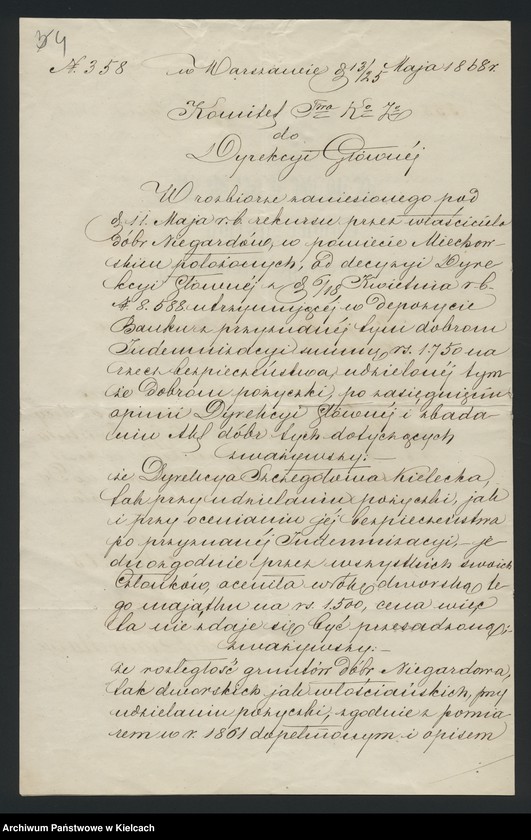 54
N. 358 w Warszawie d 13/25 Maja 1868 r.
Komitet Twa Ko Zo
do
Dyrekcyi Głównéj
W rozbiorze zaniesionego pod
d 11 Maja r.b. rekursu przez właściciela
dóbr Niegardów, w powiecie Miechow-
skim położonych, od decyzyi Dyre
kcyi Głównej z d 6/18 Kwietnia r.b.
N. 8.588 utrzymującéj w depozycie
Banku z przyznanéj tym dobrom
Indemnizacyi summę rs. 1750 na
rzecz bezpieczeństwa, udzielonéj tym
że Dobrom pożyczki, po zasięgnięciu
opinii Dyrekcyi Głównéj i zbada-
niu Akt dóbr tych dotyczących
zważywszy:-
że Dyrekcya Szczegółowa Kielecka,
tak przy udzielaniu pożyczki, jak
i przy ocenianiu jéj bezpieczeństwa
po przyznanéj Indemnizacyi, - je
dnozgodnie przez wszystkich swoich
Członków, oceniła włókę dworską te
go majątku na rs. 1500, cena więc
ta nie zdaje się być przesadzoną:-
zważywszy:-
że rozległość gruntów dóbr Niegardowa,
tak dworskich jak włościańskich, przy
udzielaniu pożyczki, zgodnie z pomia
rem w r. 1861 dopełnionym i opisem
Archiwum Państwowe w Kielcach